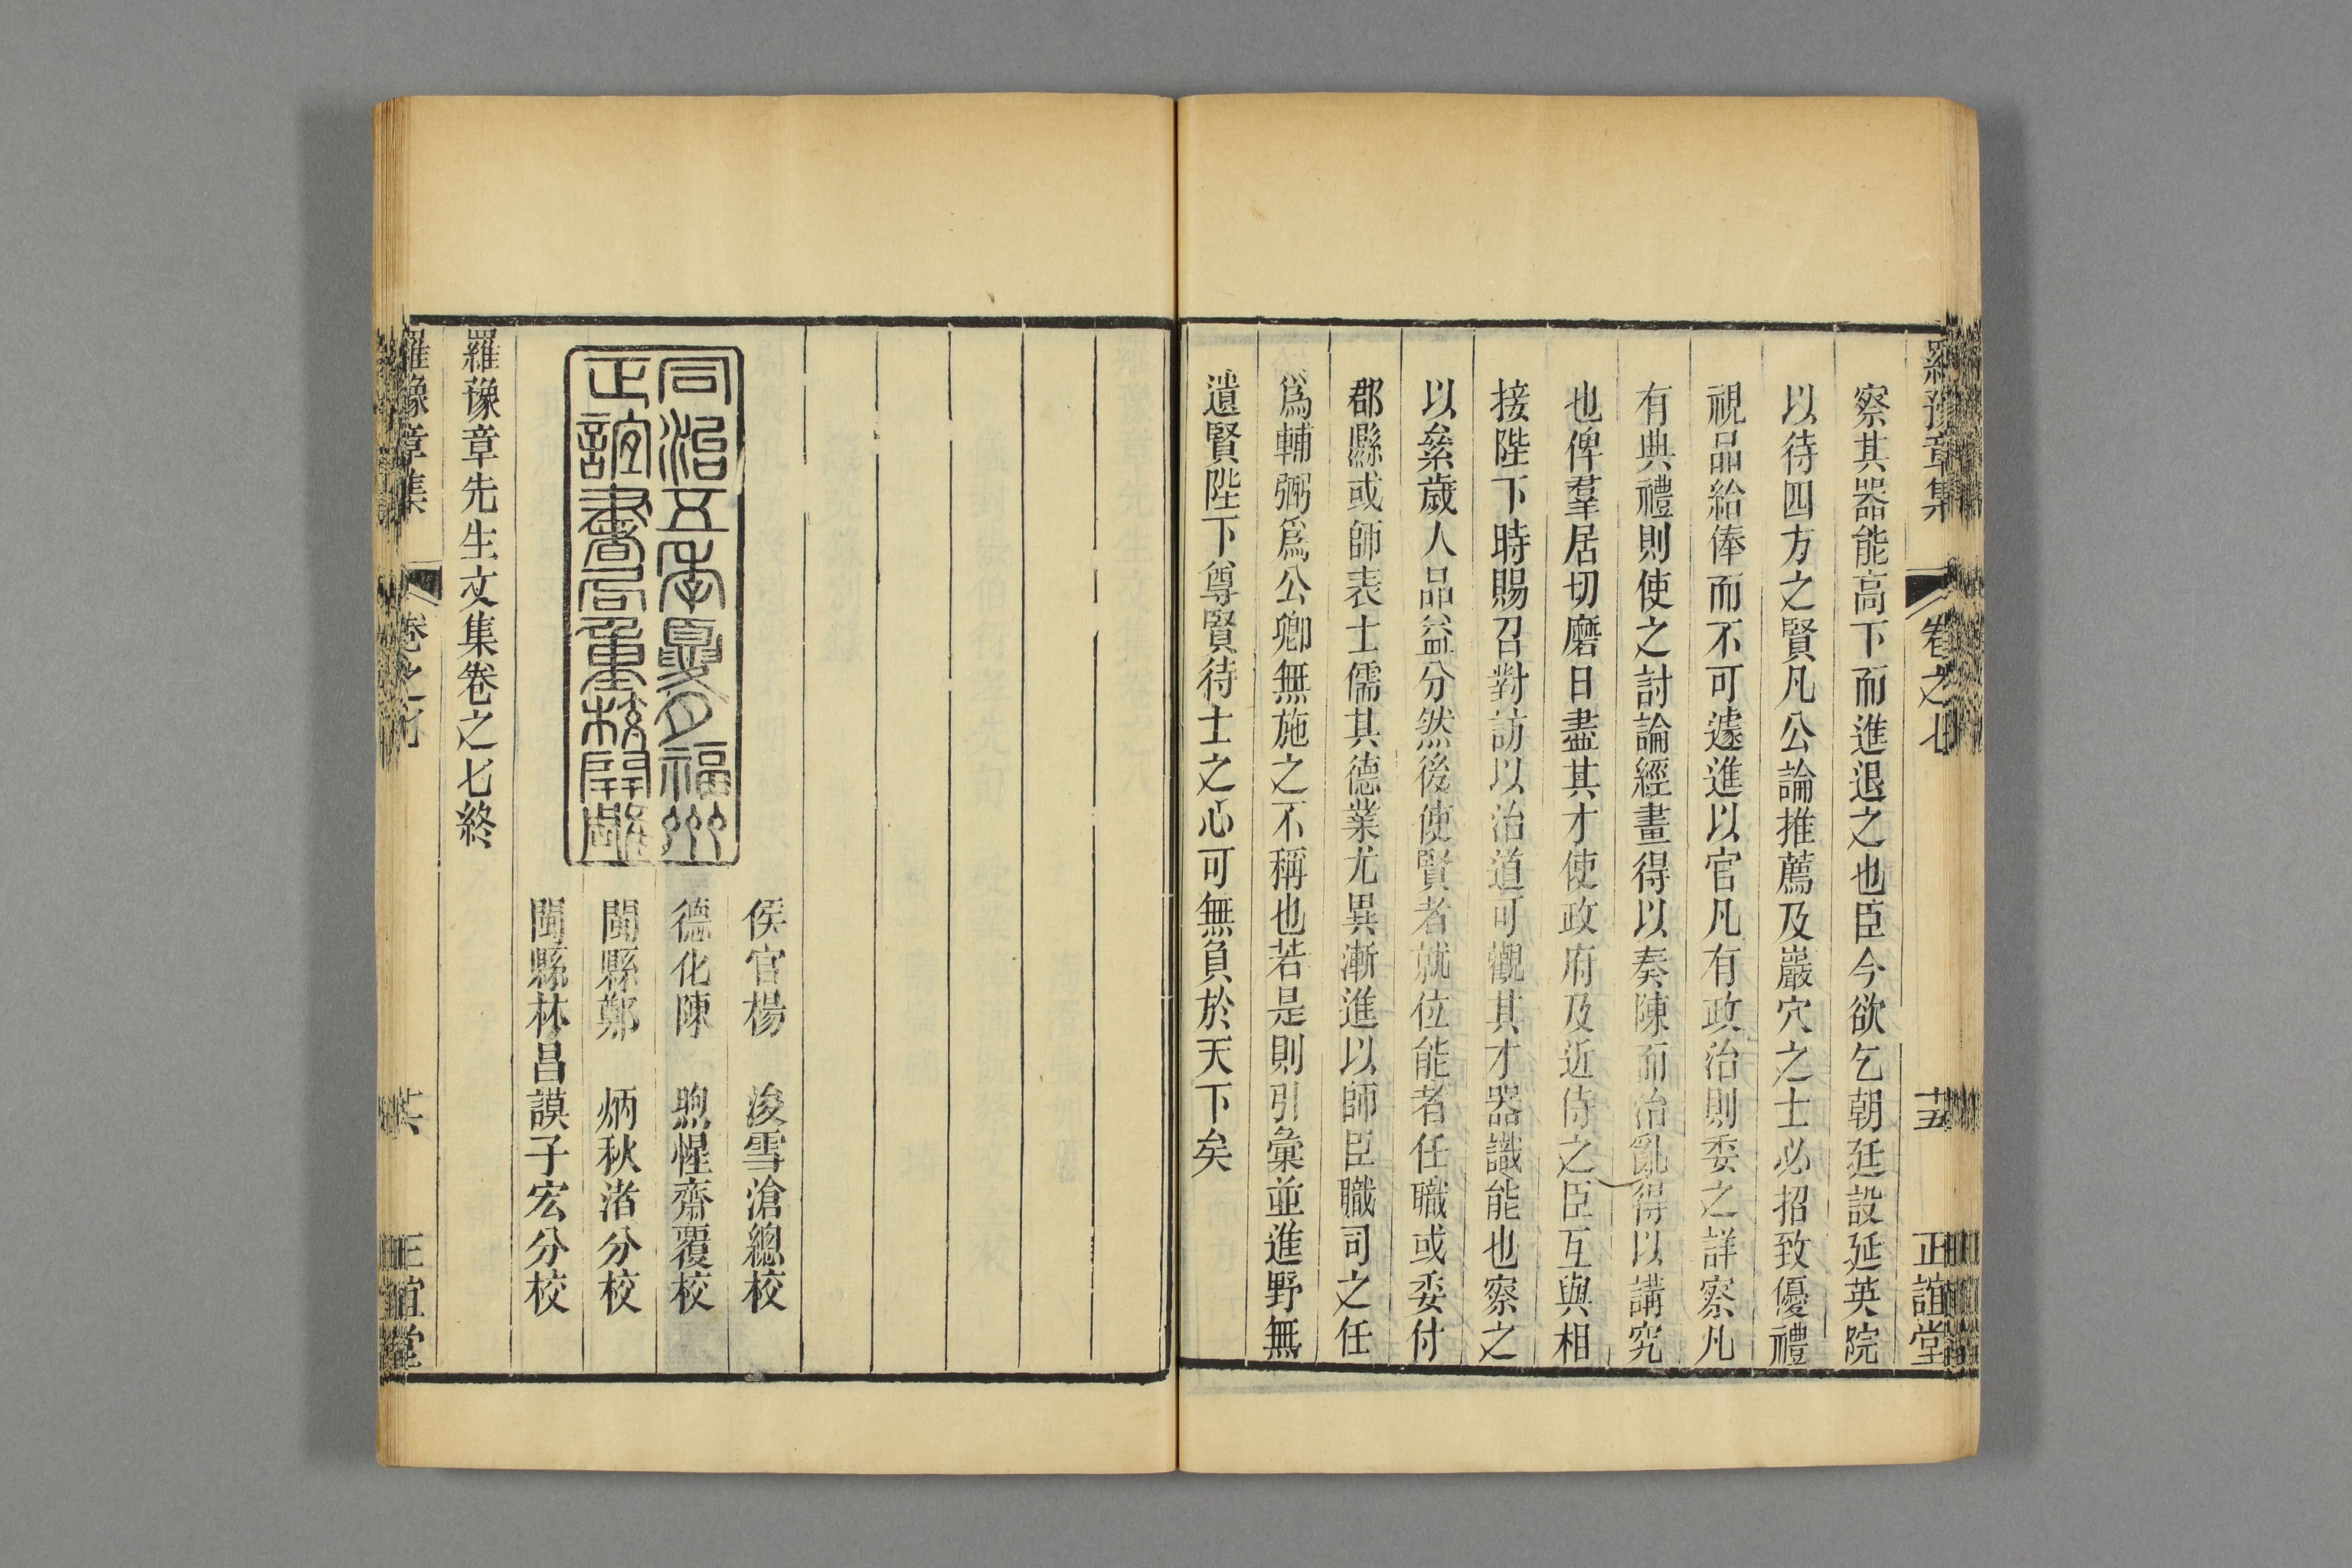 羅豫章集 卷之七 十五 正誼堂
察其器能高下而進退之也臣今欲乞朝廷設延英院
以待四方之賢凡公論推薦及巖穴之士必招致優禮
視品給俸而不可遽進以官凡有政治則委之詳察凡
有典禮則使之討論經畫得以奏陳而治亂得以講究
也俾羣居切磨日盡其才使政府及近侍之臣互與相
接陛下時賜召對訪以治道可觀其才器識能也察之
以絫歲人品益分然後使賢者就位能者任職或委付
郡縣或師表士儒其德業尤異漸進以師臣職司之任
爲輔弼爲公卿無施之不稱也若是則引彙並進野無
遺賢陛下尊賢待士之心可無負於天下矣
侯官楊 浚雪滄總校
德化陳 煦惺齋覆校
閩縣鄭 炳秋渚分校
閩縣林昌謨子宏分校
同治五年夏月福州
正誼書局重校開雕
羅豫章先生文集卷之七終
羅豫章集 卷之七 十六 正誼堂